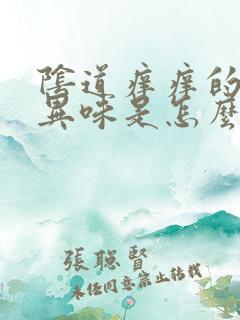 陰道痒痒的
異味是怎麼
張聰賢
未经同意禁止转载